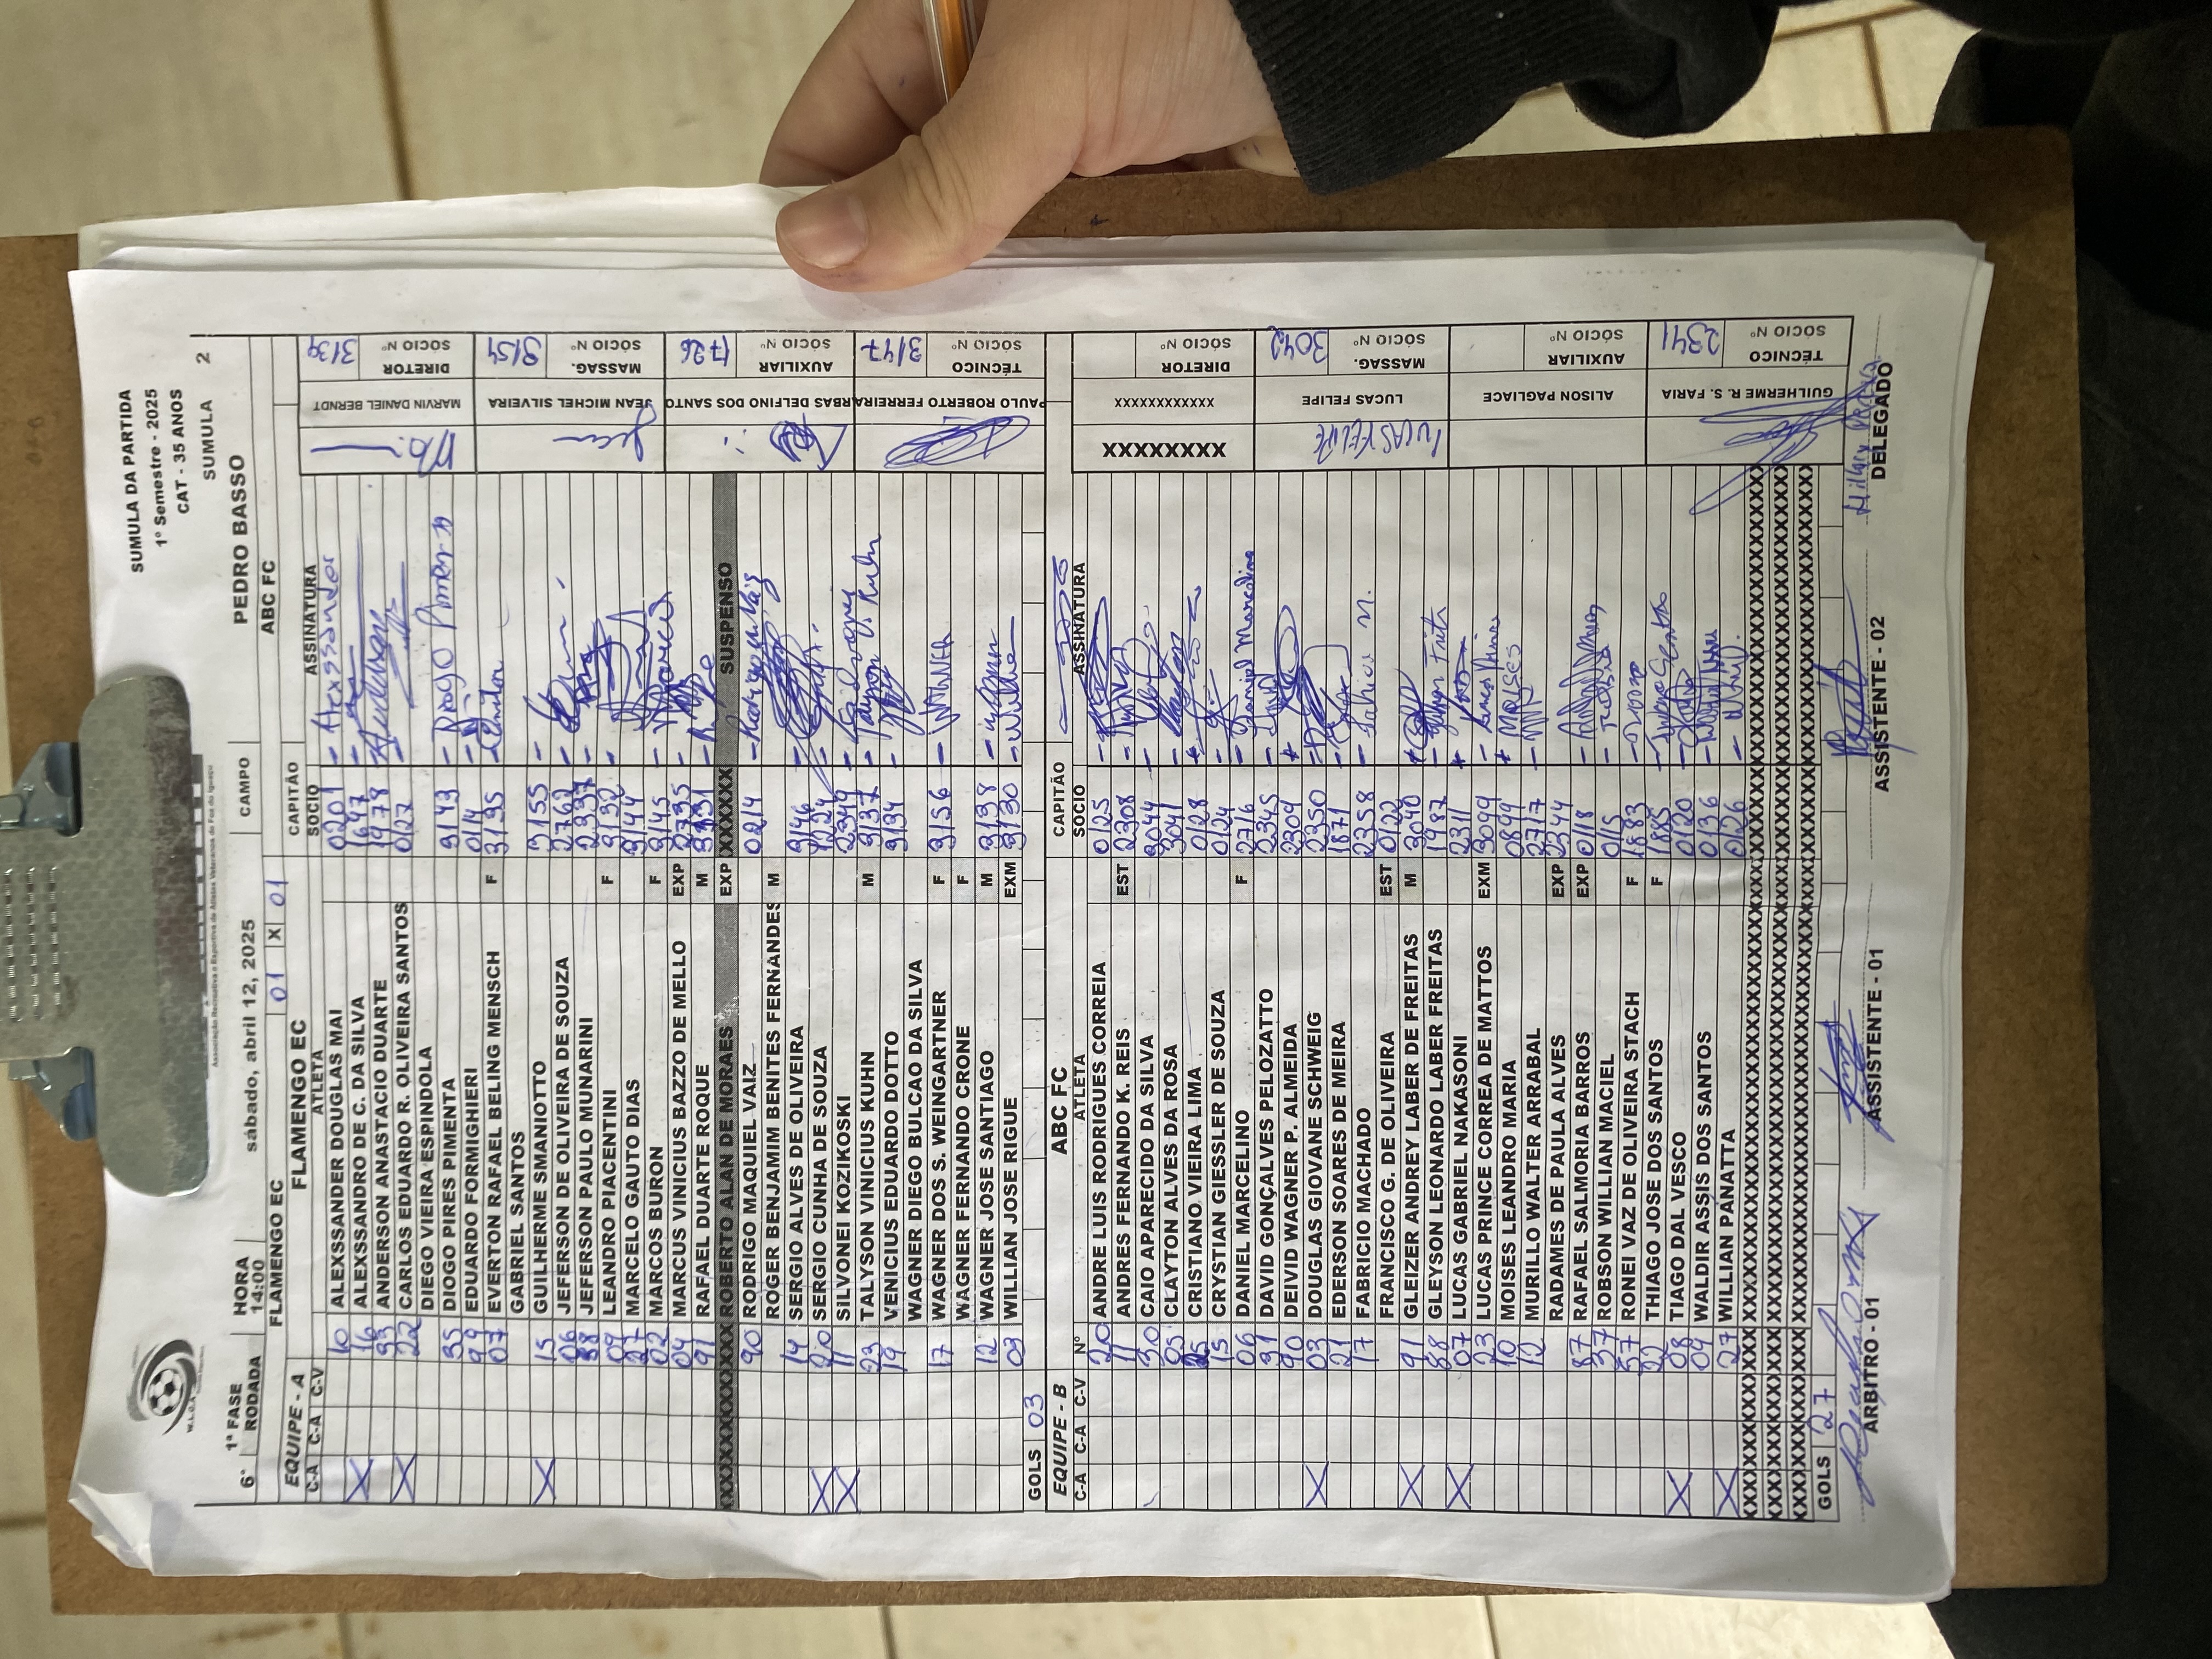 SUMULA DA PARTIDA
1º Semestre - 2025
CAT - 35 ANOS
SUMULA 2
Associação Recreativa e Esportiva de Atletas Veteranos de Foz do Iguaçu
6ª 1ª FASE RODADA HORA 14:00 sábado, abril 12, 2025 CAMPO PEDRO BASSO
FLAMENGO EC 01 X 01 ABC FC
EQUIPE - A FLAMENGO EC CAPITÃO
C-A C-A C-V ATLETA SOCIO ASSINATURA
10 ALEXSSANDER DOUGLAS MAI 0201
X 16 ALEXSSANDRO DE C. DA SILVA 1647
93 ANDERSON ANASTACIO DUARTE 1978
X 22 CARLOS EDUARDO R. OLIVEIRA SANTOS 0127
DIEGO VIEIRA ESPINDOLA
35 DIOGO PIRES PIMENTA 3143 Diogo Pimenta
99 EDUARDO FORMIGHIERI 0114
07 EVERTON RAFAEL BELING MENSCH F 3135
GABRIEL SANTOS
X 15 GUILHERME SMANIOTTO 3155
06 JEFERSON DE OLIVEIRA DE SOUZA 2762
88 JEFERSON PAULO MUNARINI 2337
09 LEANDRO PIACENTINI F 3132
27 MARCELO GAUTO DIAS 3144
02 MARCOS BURON F 3145
04 MARCUS VINICIUS BAZZO DE MELLO EXP 2735
91 RAFAEL DUARTE ROQUE M 3131
XXXXXXXXXXXXXX ROBERTO ALAN DE MORAES EXP XXXXXXX SUSPENSO
90 RODRIGO MAQUIEL VAIZ 0214
ROGER BENJAMIM BENITES FERNANDES M
14 SERGIO ALVES DE OLIVEIRA 3146
X 20 SERGIO CUNHA DE SOUZA
X 11 SILVONEI KOZIKOSKI 2349
23 TALYSON VINICIUS KUHN M 3137
19 VENICIUS EDUARDO DOTTO 3134
WAGNER DIEGO BULCAO DA SILVA
17 WAGNER DOS S. WEINGARTNER F 3156 WAGNER
WAGNER FERNANDO CRONE F
12 WAGNER JOSE SANTIAGO M 3138
03 WILLIAN JOSE RIGUE EXM 3130
GOLS 03
MARVIN DANIEL BERNDT DIRETOR SÓCIO Nº 3139
JEAN MICHEL SILVEIRA MASSAG. SÓCIO Nº 3154
Jean
RBAS DELFINO DOS SANTO AUXILIAR SÓCIO Nº 1726
PAULO ROBERTO FERREIRA TÉCNICO SÓCIO Nº 3147
EQUIPE - B ABC FC CAPITÃO
C-A C-A C-V Nº ATLETA SOCIO ASSINATURA
20 ANDRE LUIS RODRIGUES CORREIA 0125
11 ANDRES FERNANDO K. REIS EST 2308
30 CAIO APARECIDO DA SILVA 3044
05 CLAYTON ALVES DA ROSA 3041
25 CRISTIANO VIEIRA LIMA 0128
15 CRYSTIAN GIESSLER DE SOUZA 0124
06 DANIEL MARCELINO F 2716 Daniel Marcelino
31 DAVID GONÇALVES PELOZATTO 2345
90 DEIVID WAGNER P. ALMEIDA 2309
X 03 DOUGLAS GIOVANE SCHWEIG 2350
21 EDERSON SOARES DE MEIRA 1871
17 FABRICIO MACHADO 2358 Fabricio M.
FRANCISCO G. DE OLIVEIRA EST 0122
X 91 GLEIZER ANDREY LABER DE FREITAS M 3040
88 GLEYSON LEONARDO LABER FREITAS 1987
X 07 LUCAS GABRIEL NAKASONI 2311
23 LUCAS PRINCE CORREA DE MATTOS EXM 3099
10 MOISES LEANDRO MARIA 0899 MOISES
12 MURILLO WALTER ARRABAL 2717
RADAMES DE PAULA ALVES EXP 2344
87 RAFAEL SALMORIA BARROS EXP 0118
37 ROBSON WILLIAN MACIEL 0115
57 RONEI VAZ DE OLIVEIRA STACH F 1883
22 THIAGO JOSE DOS SANTOS F 1885
X 08 TIAGO DAL VESCO 0120
04 WALDIR ASSIS DOS SANTOS 0136
X 27 WILLIAN PANATTA 0126
GOLS 27
XXXXXXXXX XXXXXXXXXXXX DIRETOR SÓCIO Nº
LUCAS FELIPE LUCAS FELIPE MASSAG. SÓCIO Nº 3042
ALISON PAGLIACE AUXILIAR SÓCIO Nº
GUILHERME R. S. FARIA TÉCNICO SÓCIO Nº 2341
ARBITRO - 01 ASSISTENTE - 01 ASSISTENTE - 02 DELEGADO